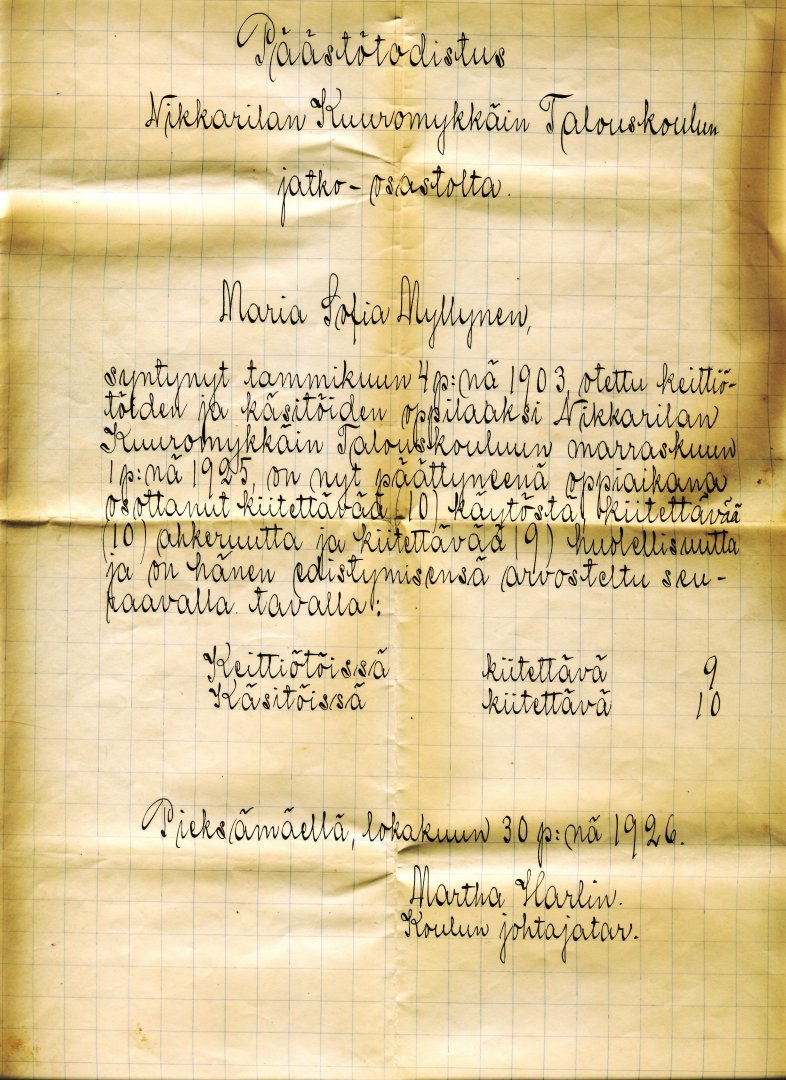 Päästötodistus
Nikkarilan Kuuromykkäin Talouskoulun
jatko-osastolta.
Maria Sofia Myllynen,
syntynyt tammikuun 4 p:nä 1903, otettu keittiö-
töiden ja käsitöiden oppilaaksi Nikkarilan
Kuuromykkäin Talouskouluun marraskuun
1 p:nä 1925, on nyt päättyneenä oppiaikana
osottanut kiitettävää (10) käytöstä, kiitettävää
(10) ahkeruutta ja kiitettävää (9) huolellisuutta
ja on hänen edistymisensä arvosteltu seu-
raavalla tavalla:
Keittiötöissä kiitettävä 9
Käsitöissä kiitettävä 10
Pieksämäellä, lokakuun 30 p:nä 1926.
Martha Harlin.
Koulun johtajatar.